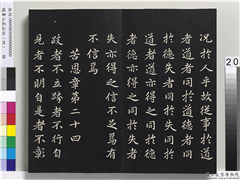 況於人乎故從事於道
者道者同於道德者同
於德失者同於失同於
道者道亦得之同於德
者德亦得之同於失者
失亦得之信不足焉有
不信焉
苦恩章第二十四
跂者不立跨者不行自
見者不明自是者不彰
20